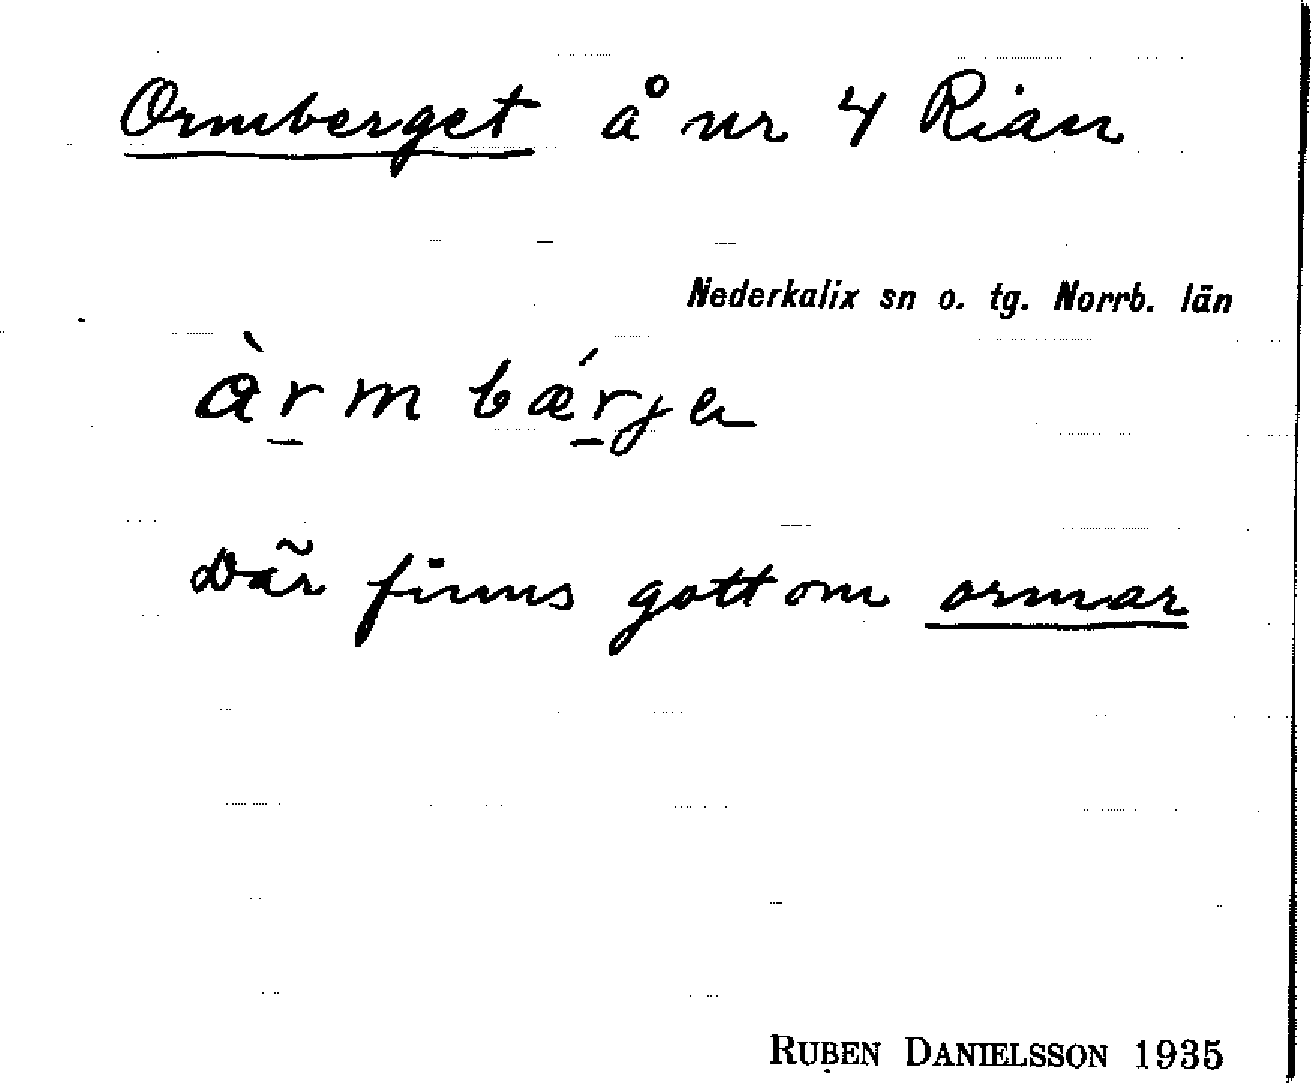 Ormberget å nr 4 Rian
Nederkalix sn o. tg. Norrb. län
àr̲m bǽr̲ja
Där finns gott om ormar
RUBEN DANIELSSON 1935